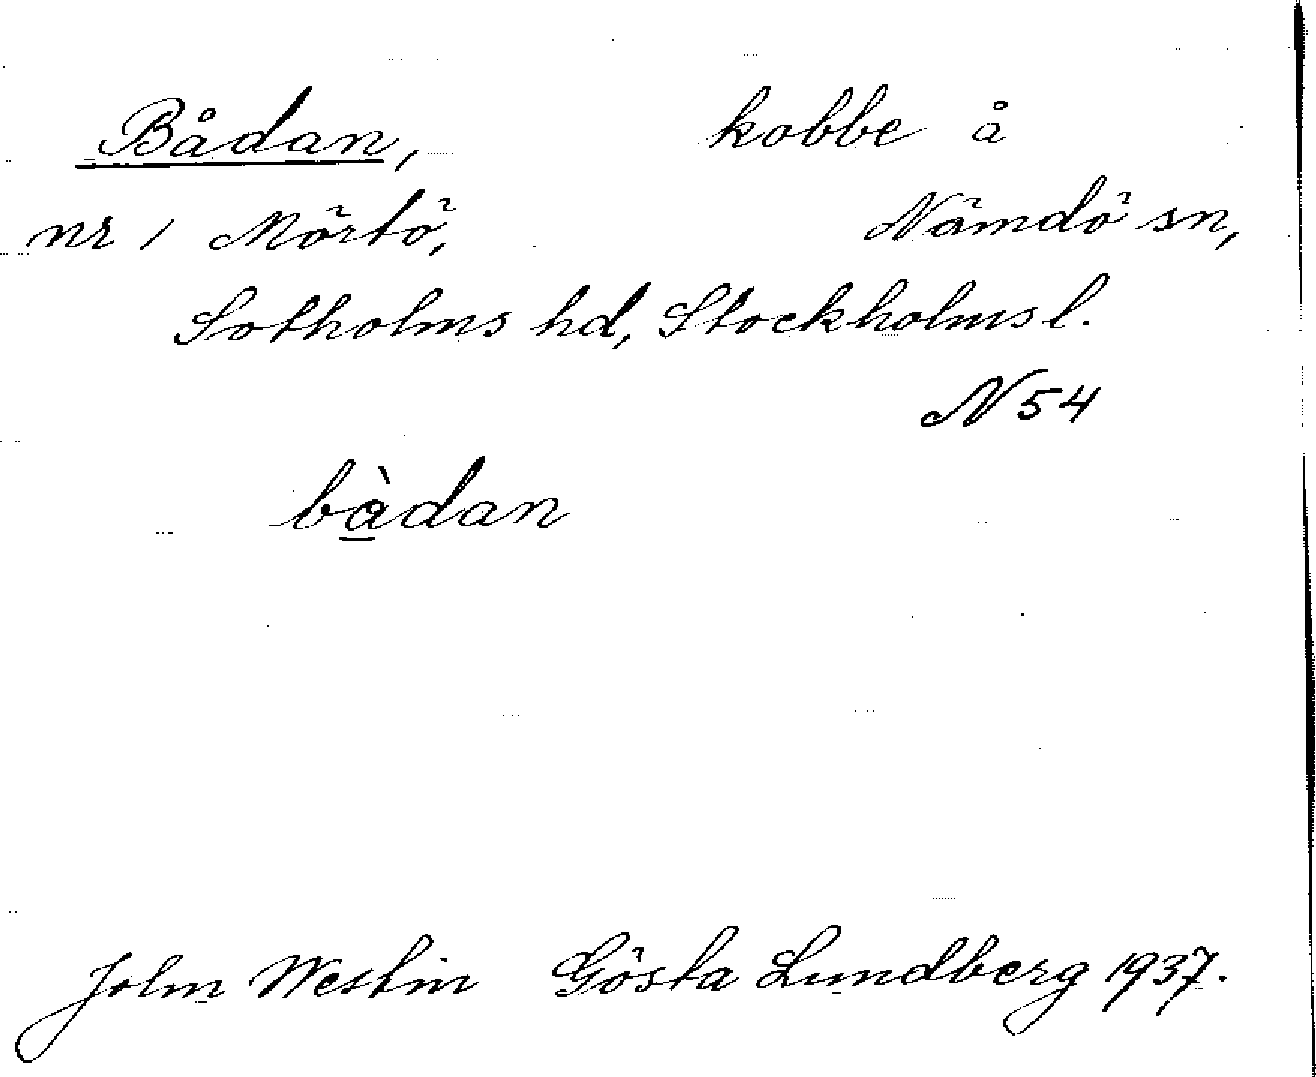 Bådan, kobbe å
nr 1 Mörtö, Nämdö sn,
Sotholms hd, Stockholms l.
N 54
bàdan
John Westin Gösta Lundberg 1937.